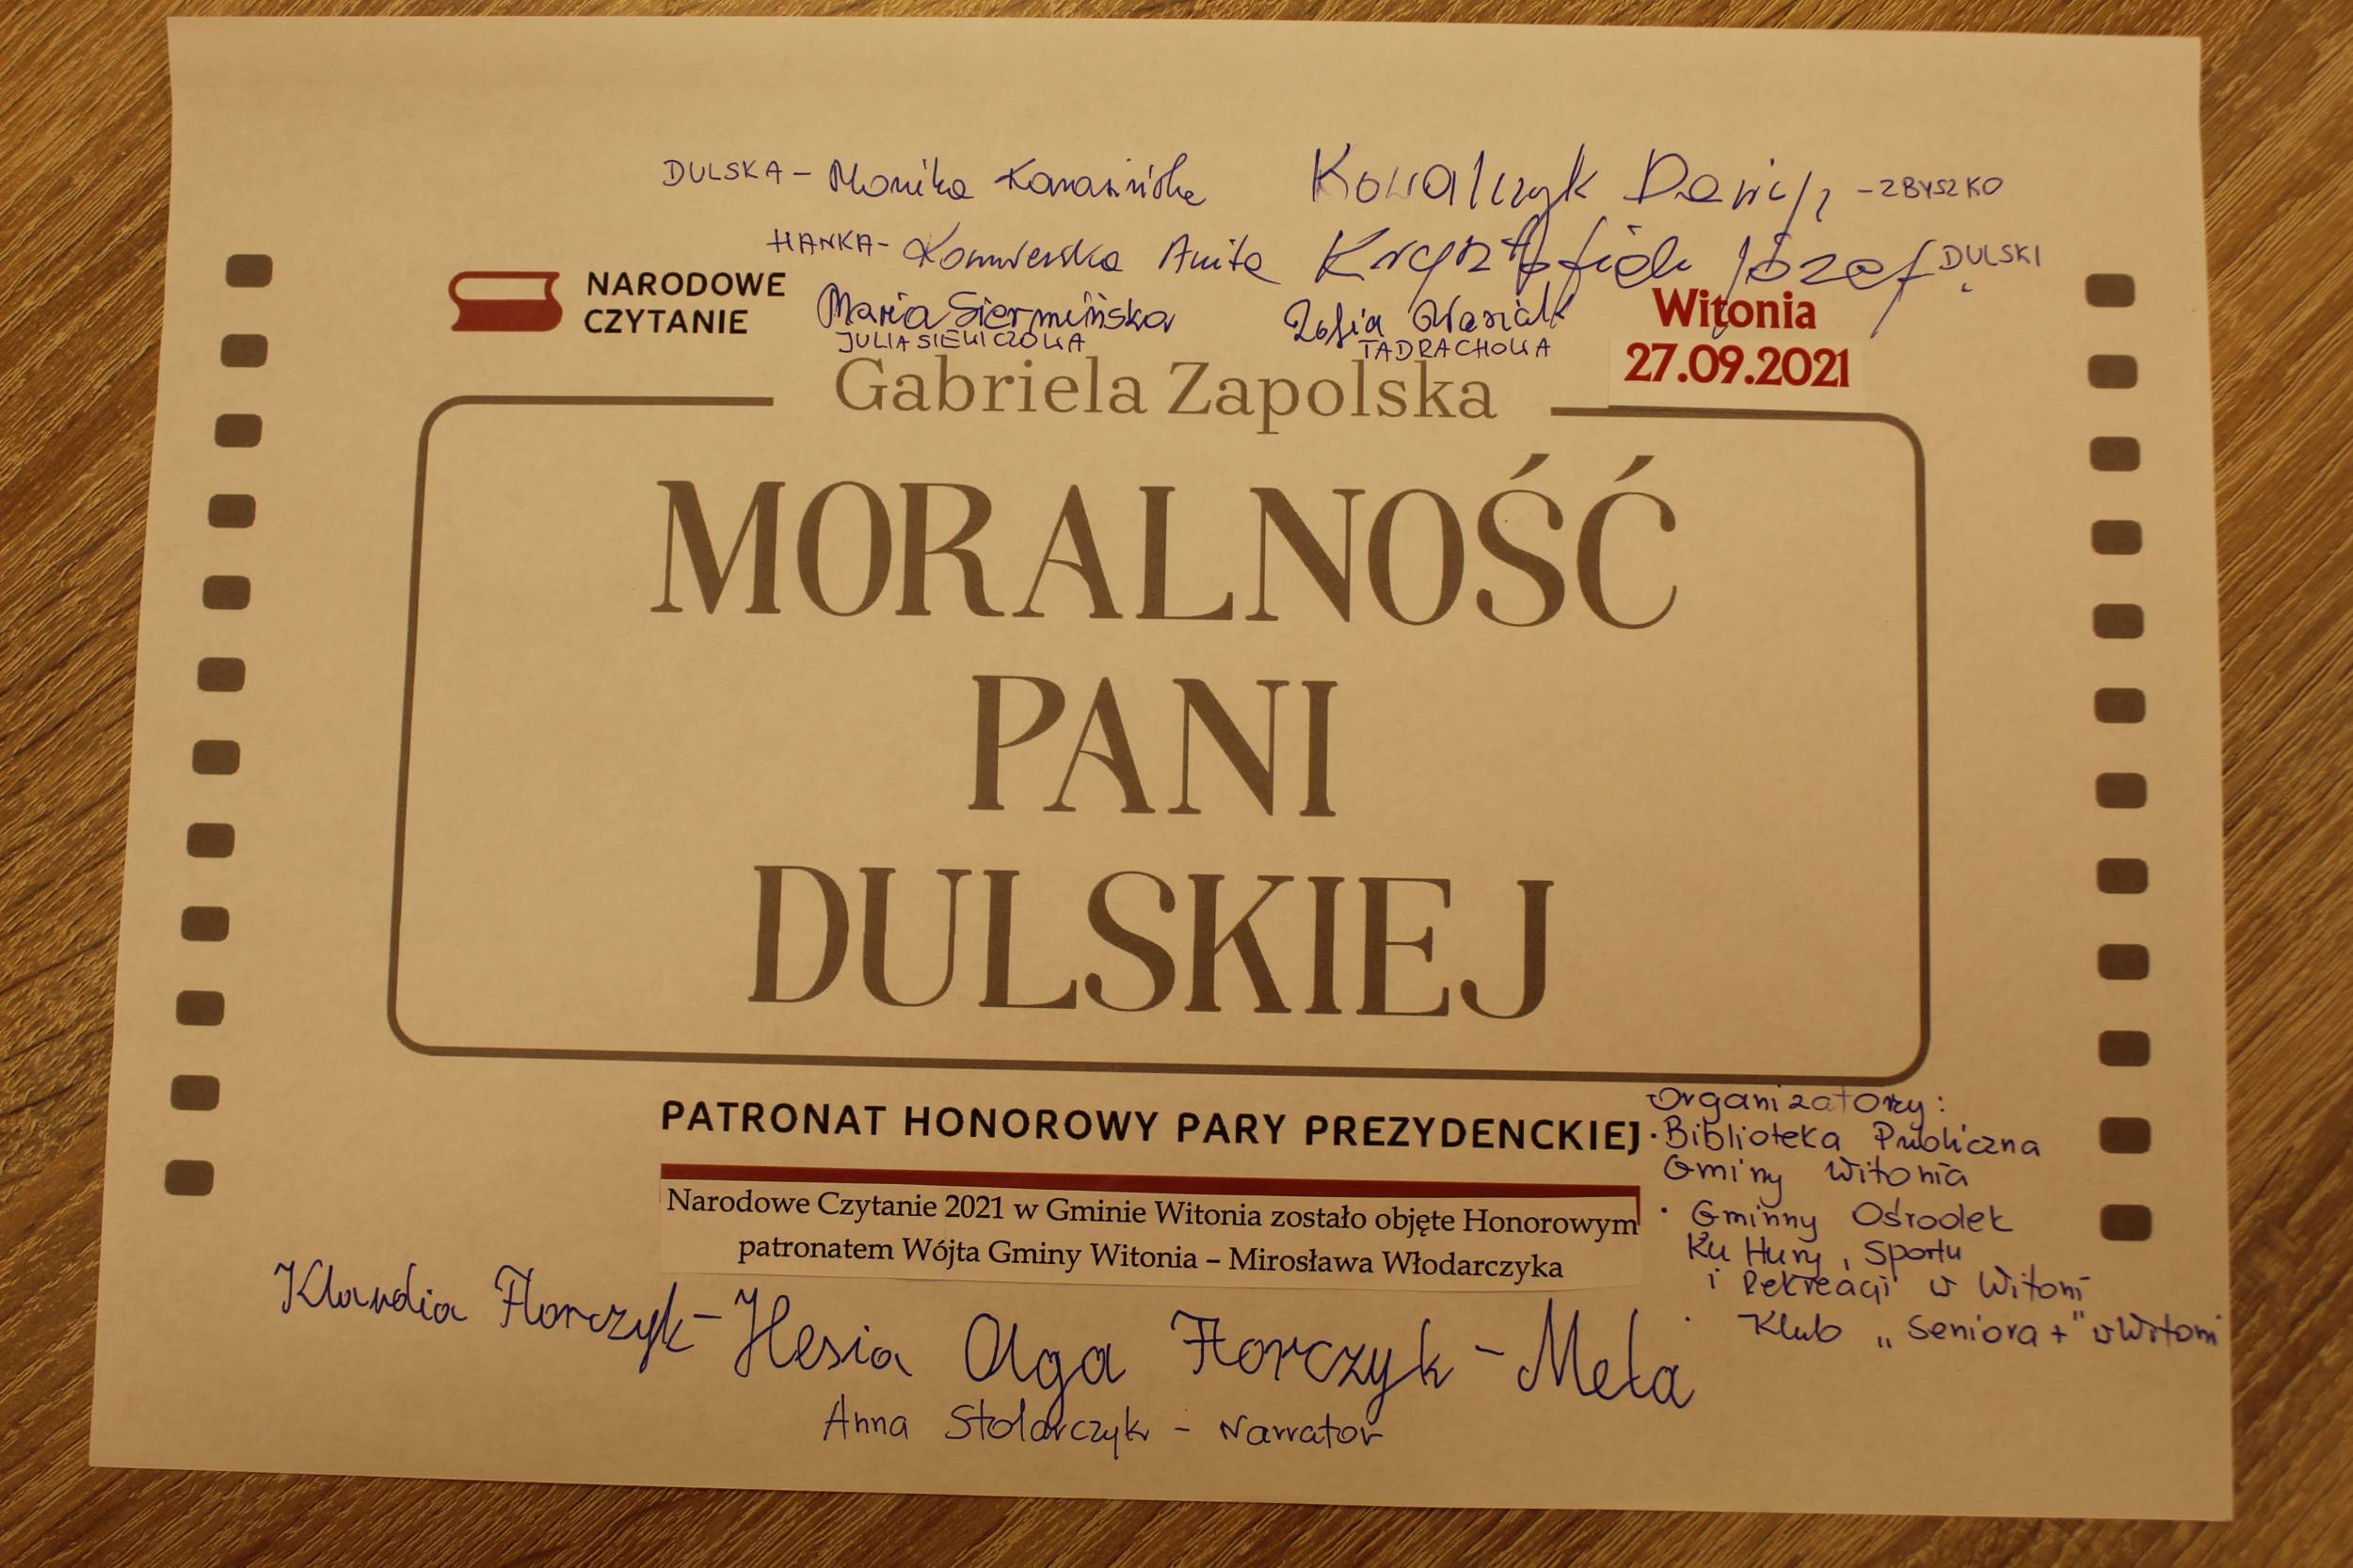 DULSKA - Monika
Kowalczyk - ZBYSZKO
HANKA - Anita
Krzysztofiak Józef DULSKI
NARODOWE
CZYTANIE
Maria Siermińska
JULIASIEWICZOWA
Zofia
TADRACHOWA
Witonia
27.09.2021
Gabriela Zapolska
MORALNOŚĆ
PANI
DULSKIEJ
PATRONAT HONOROWY PARY PREZYDENCKIEJ
Narodowe Czytanie 2021 w Gminie Witonia zostało objęte Honorowym
patronatem Wójta Gminy Witonia – Mirosława Włodarczyka
Organizatorzy:
· Biblioteka Publiczna
Gminy Witonia
· Gminny Ośrodek
Kultury, Sportu
i Rekreacji w Witoni
· Klub „Seniora+" w Witoni
Klaudia Florczyk - Hesia Olga Florczyk - Mela
Anna Stolarczyk - Narrator